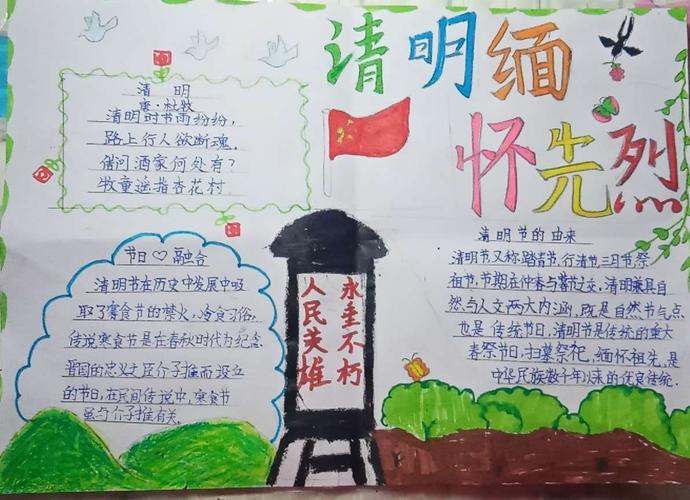 清明缅
怀先烈
清 明
唐·杜牧
清明时节雨纷纷,
路上行人欲断魂.
借问酒家何处有?
牧童遥指杏花村
节日♡融合
清明节在历史中发展中吸
取了寒食节的禁火、冷食习俗,
传说寒食节是在春秋时代为纪念
晋国的忠义之臣介子推而设立
的节日,在民间传说中,寒食节
总与介子推有关.
人民英雄
永垂不朽
清明节的由来
清明节又称踏青节,行清节,三月节,祭
祖节,节期在仲春与暮春之交,清明兼具自
然与人文两大内涵,既是自然节气点
也是传统节日,清明节是传统的重大
春祭节日,扫墓祭祀,缅怀祖先,是
中华民族数千年以来的优良传统.